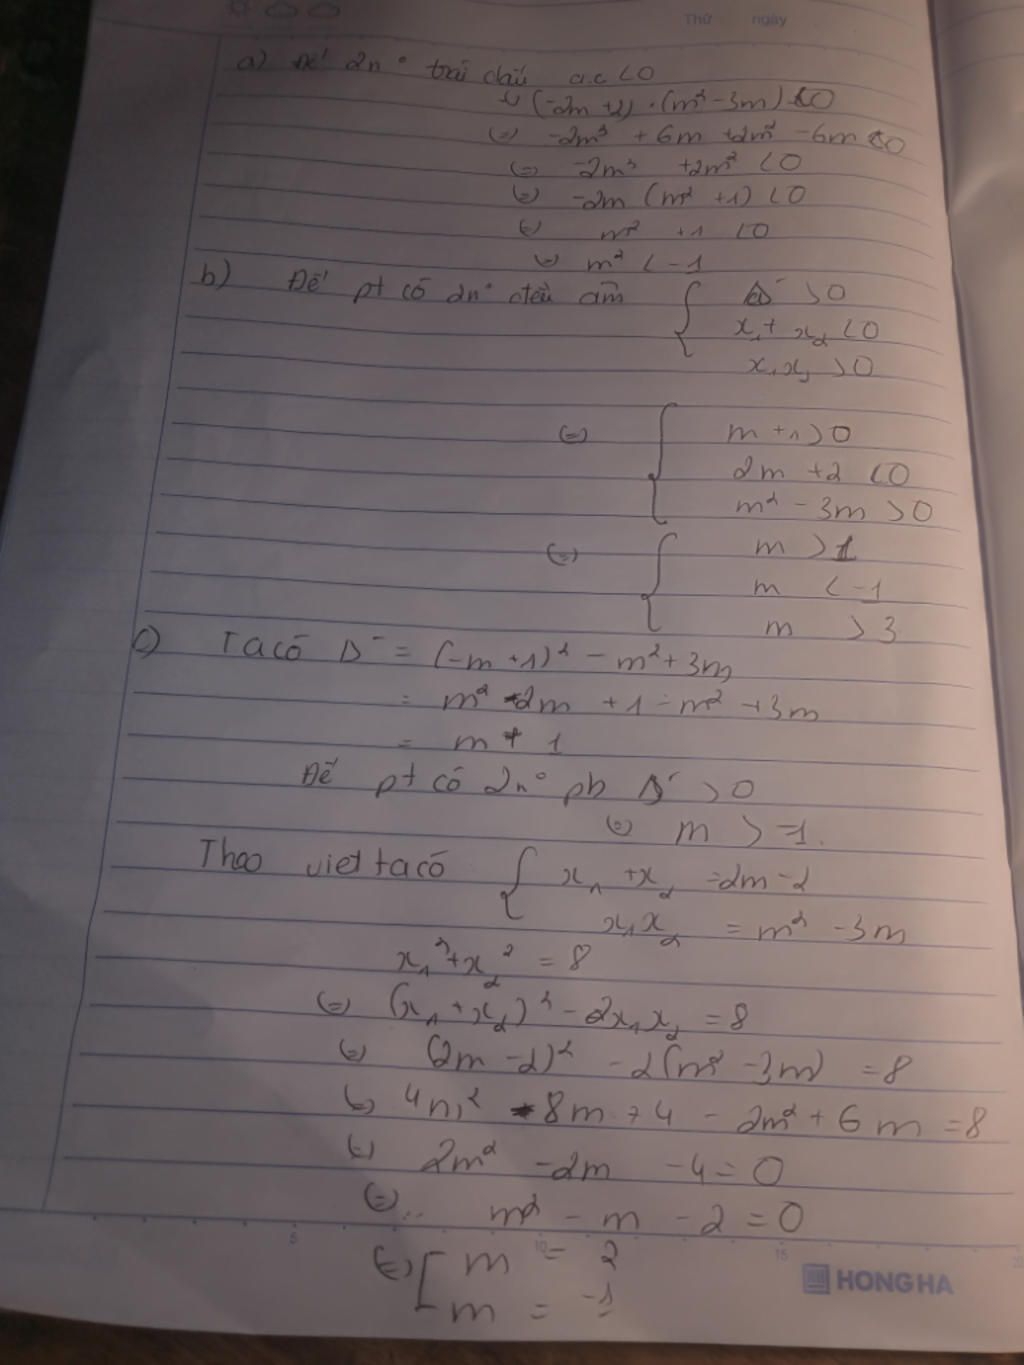 Thứ ngày
a) Để 2n° trái dấu a.c < 0
(=) (-2m + 2) . (m² - 3m) < 0
(=) -2m³ + 6m + 2m² - 6m < 0
(=) -2m³ + 2m² < 0
(=) -2m (m² + 1) < 0
(=) m² + 1 < 0
(=) m² < -1
b) Để pt có 2n° đều âm { Δ' > 0
x₁ + x₂ < 0
x₁x₂ > 0
(=) { m + 1 > 0
2m + 2 < 0
m² - 3m > 0
(=) { m > 1
m < -1
m > 3
c) Ta có Δ' = (-m + 1)² - m² + 3m
= m² - 2m + 1 - m² + 3m
= m + 1
Để pt có 2n° pb Δ' > 0
(=) m > -1.
Theo viet ta có { x₁ + x₂ = 2m - 2
x₁x₂ = m² - 3m
x₁² + x₂² = 8
(=) (x₁ + x₂)² - 2x₁x₂ = 8
(=) (2m - 2)² - 2(m² - 3m) = 8
(=) 4m² - 8m + 4 - 2m² + 6m = 8
(=) 2m² - 2m - 4 = 0
(=) .. m² - m - 2 = 0
(=) [ m = 2
m = -1
5 10 15 20
HONG HA